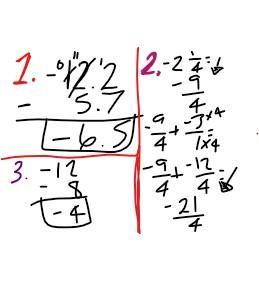 1. -12.2
- 5.7
-6.5
2. -2 1/4 = ↓
-9/4
-9/4 + -3×4/1×4 =
-9/4 + -12/4 = ↓
-21/4
3. -12
- 8
-4